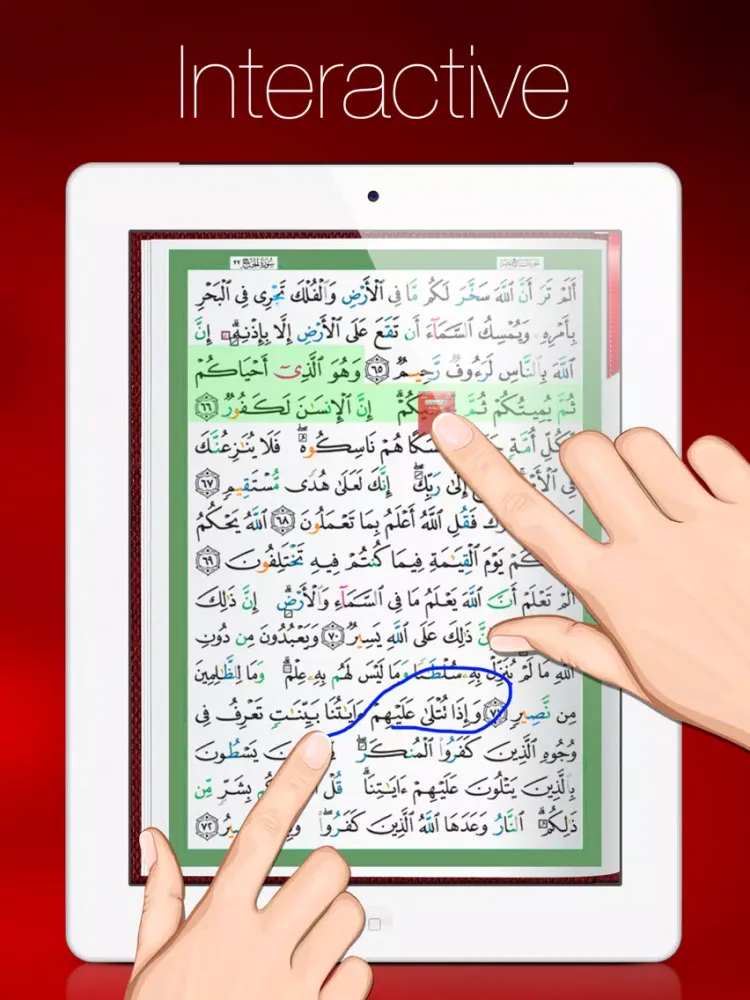 Interactive
سُورَةُ الحَجِّ ٢٢
أَلَمْ تَرَ أَنَّ ٱللَّهَ سَخَّرَ لَكُم مَّا فِى ٱلْأَرْضِ وَٱلْفُلْكَ تَجْرِى فِى ٱلْبَحْرِ
بِأَمْرِهِۦ وَيُمْسِكُ ٱلسَّمَآءَ أَن تَقَعَ عَلَى ٱلْأَرْضِ إِلَّا بِإِذْنِهِۦٓ ۗ إِنَّ
ٱللَّهَ بِٱلنَّاسِ لَرَءُوفٌ رَّحِيمٌ ٦٥ وَهُوَ ٱلَّذِىٓ أَحْيَاكُمْ
ثُمَّ يُمِيتُكُمْ ثُمَّ يُحْيِيكُمْ ۗ إِنَّ ٱلْإِنسَـٰنَ لَكَفُورٌ ٦٦
لِّكُلِّ أُمَّةٍ هُمْ نَاسِكُوهُ ۖ فَلَا يُنَـٰزِعُنَّكَ
فِى إِلَىٰ رَبِّكَ ۖ إِنَّكَ لَعَلَىٰ هُدًى مُّسْتَقِيمٍ ٦٧
فَقُلِ ٱللَّهُ أَعْلَمُ بِمَا تَعْمَلُونَ ٦٨ ٱللَّهُ يَحْكُمُ
يَوْمَ ٱلْقِيَـٰمَةِ فِيمَا كُنتُمْ فِيهِ تَخْتَلِفُونَ ٦٩
أَلَمْ تَعْلَمْ أَنَّ ٱللَّهَ يَعْلَمُ مَا فِى ٱلسَّمَآءِ وَٱلْأَرْضِ ۗ إِنَّ ذَٰلِكَ
إِنَّ ذَٰلِكَ عَلَى ٱللَّهِ يَسِيرٌ ٧٠ وَيَعْبُدُونَ مِن دُونِ
ٱللَّهِ مَا لَمْ يُنَزِّلْ بِهِۦ سُلْطَـٰنًا وَمَا لَيْسَ لَهُم بِهِۦ عِلْمٌ ۗ وَمَا لِلظَّـٰلِمِينَ
مِن نَّصِيرٍ ٧١ وَإِذَا تُتْلَىٰ عَلَيْهِمْ ءَايَـٰتُنَا بَيِّنَـٰتٍ تَعْرِفُ فِى
وُجُوهِ ٱلَّذِينَ كَفَرُوا۟ ٱلْمُنكَرَ ۖ يَسْطُونَ
بِٱلَّذِينَ يَتْلُونَ عَلَيْهِمْ ءَايَـٰتِنَا ۗ قُلْ بِشَرٍّ مِّن
ذَٰلِكُمُ ۗ ٱلنَّارُ وَعَدَهَا ٱللَّهُ ٱلَّذِينَ كَفَرُوا۟ ۖ ٧٢